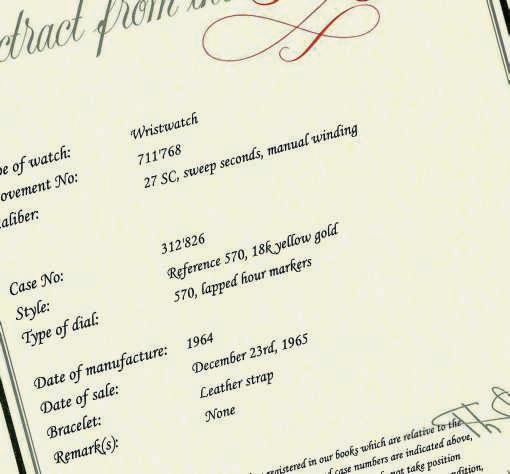 ctract from the
pe of watch: Wristwatch
ovement No: 711'768
aliber: 27 SC, sweep seconds, manual winding
Case No: 312'826
Style: Reference 570, 18k yellow gold
Type of dial: 570, lapped hour markers
Date of manufacture: 1964
Date of sale: December 23rd, 1965
Bracelet: Leather strap
Remark(s): None
registered in our books which are relative to the
d case numbers are indicated above,
us take position
dition,